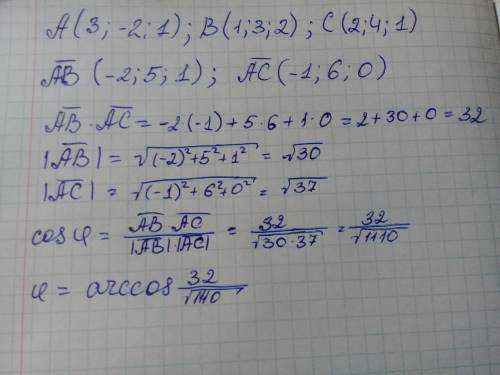 A(3; -2; 1); B(1; 3; 2); C(2; 4; 1)
A̅B̅ (-2; 5; 1); A̅C̅ (-1; 6; 0)
A̅B̅ · A̅C̅ = -2·(-1) + 5·6 + 1·0 = 2 + 30 + 0 = 32
|A̅B̅| = √((-2)² + 5² + 1²) = √30
|A̅C̅| = √((-1)² + 6² + 0²) = √37
cos φ = (A̅B̅ · A̅C̅)/(|A̅B̅|·|A̅C̅|) = 32/√(30·37) = 32/√1110
φ = arccos 32/√1110